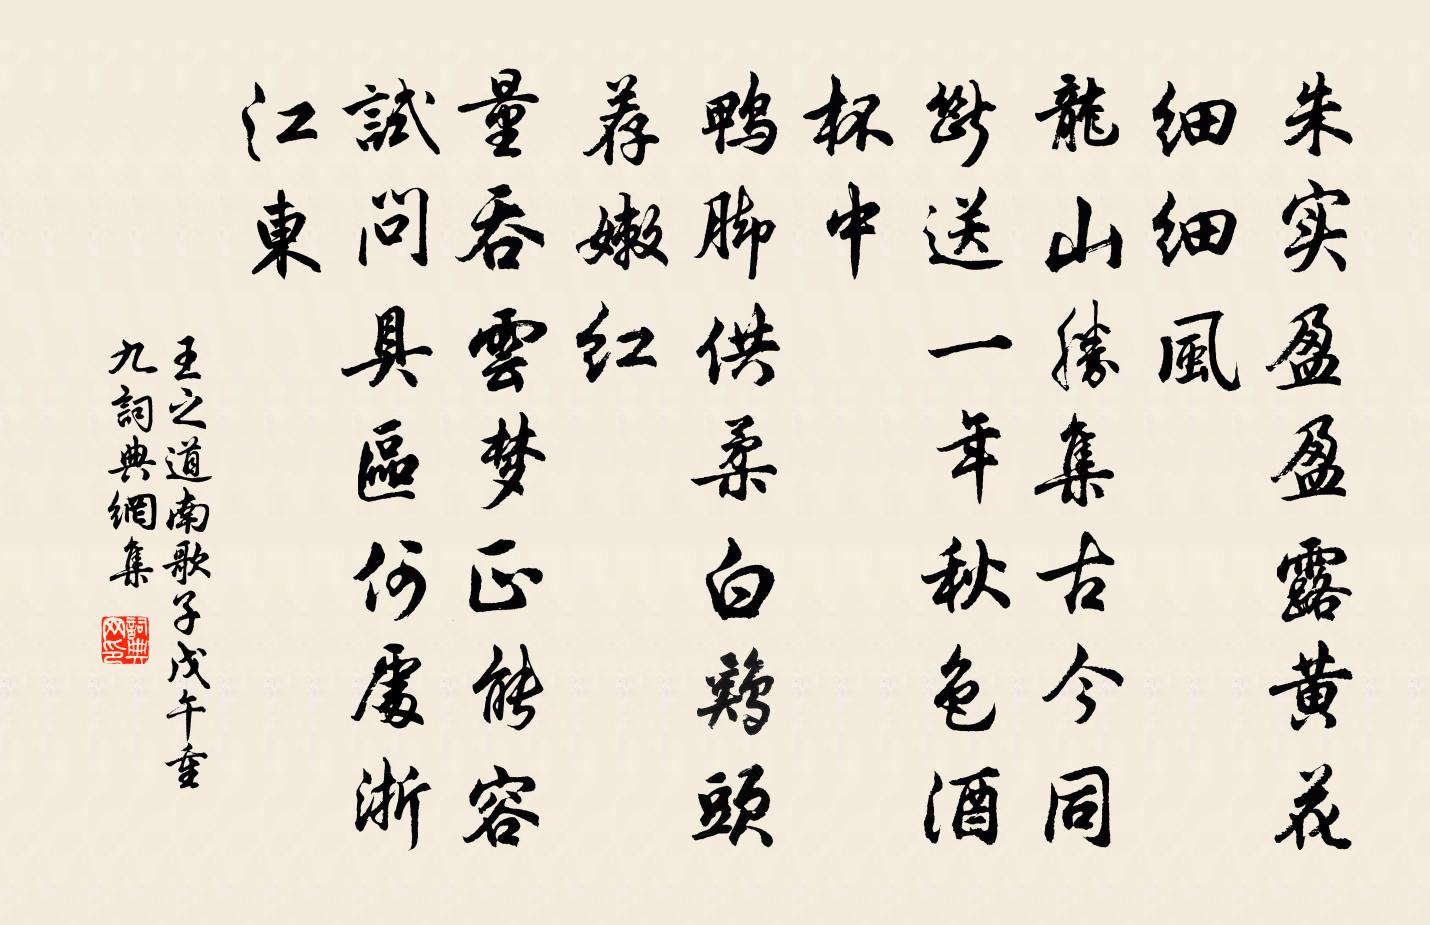 朱实盈盈露黄花
细细風
龍山勝集古今同
斷送一年秋色酒
杯中
鸭脚供柔白鷄頭
荐嫩红
量吞雲梦正能容
試問具區何處浙
江東
王之道南歌子戊午重
九詞典網集
詞典
网印